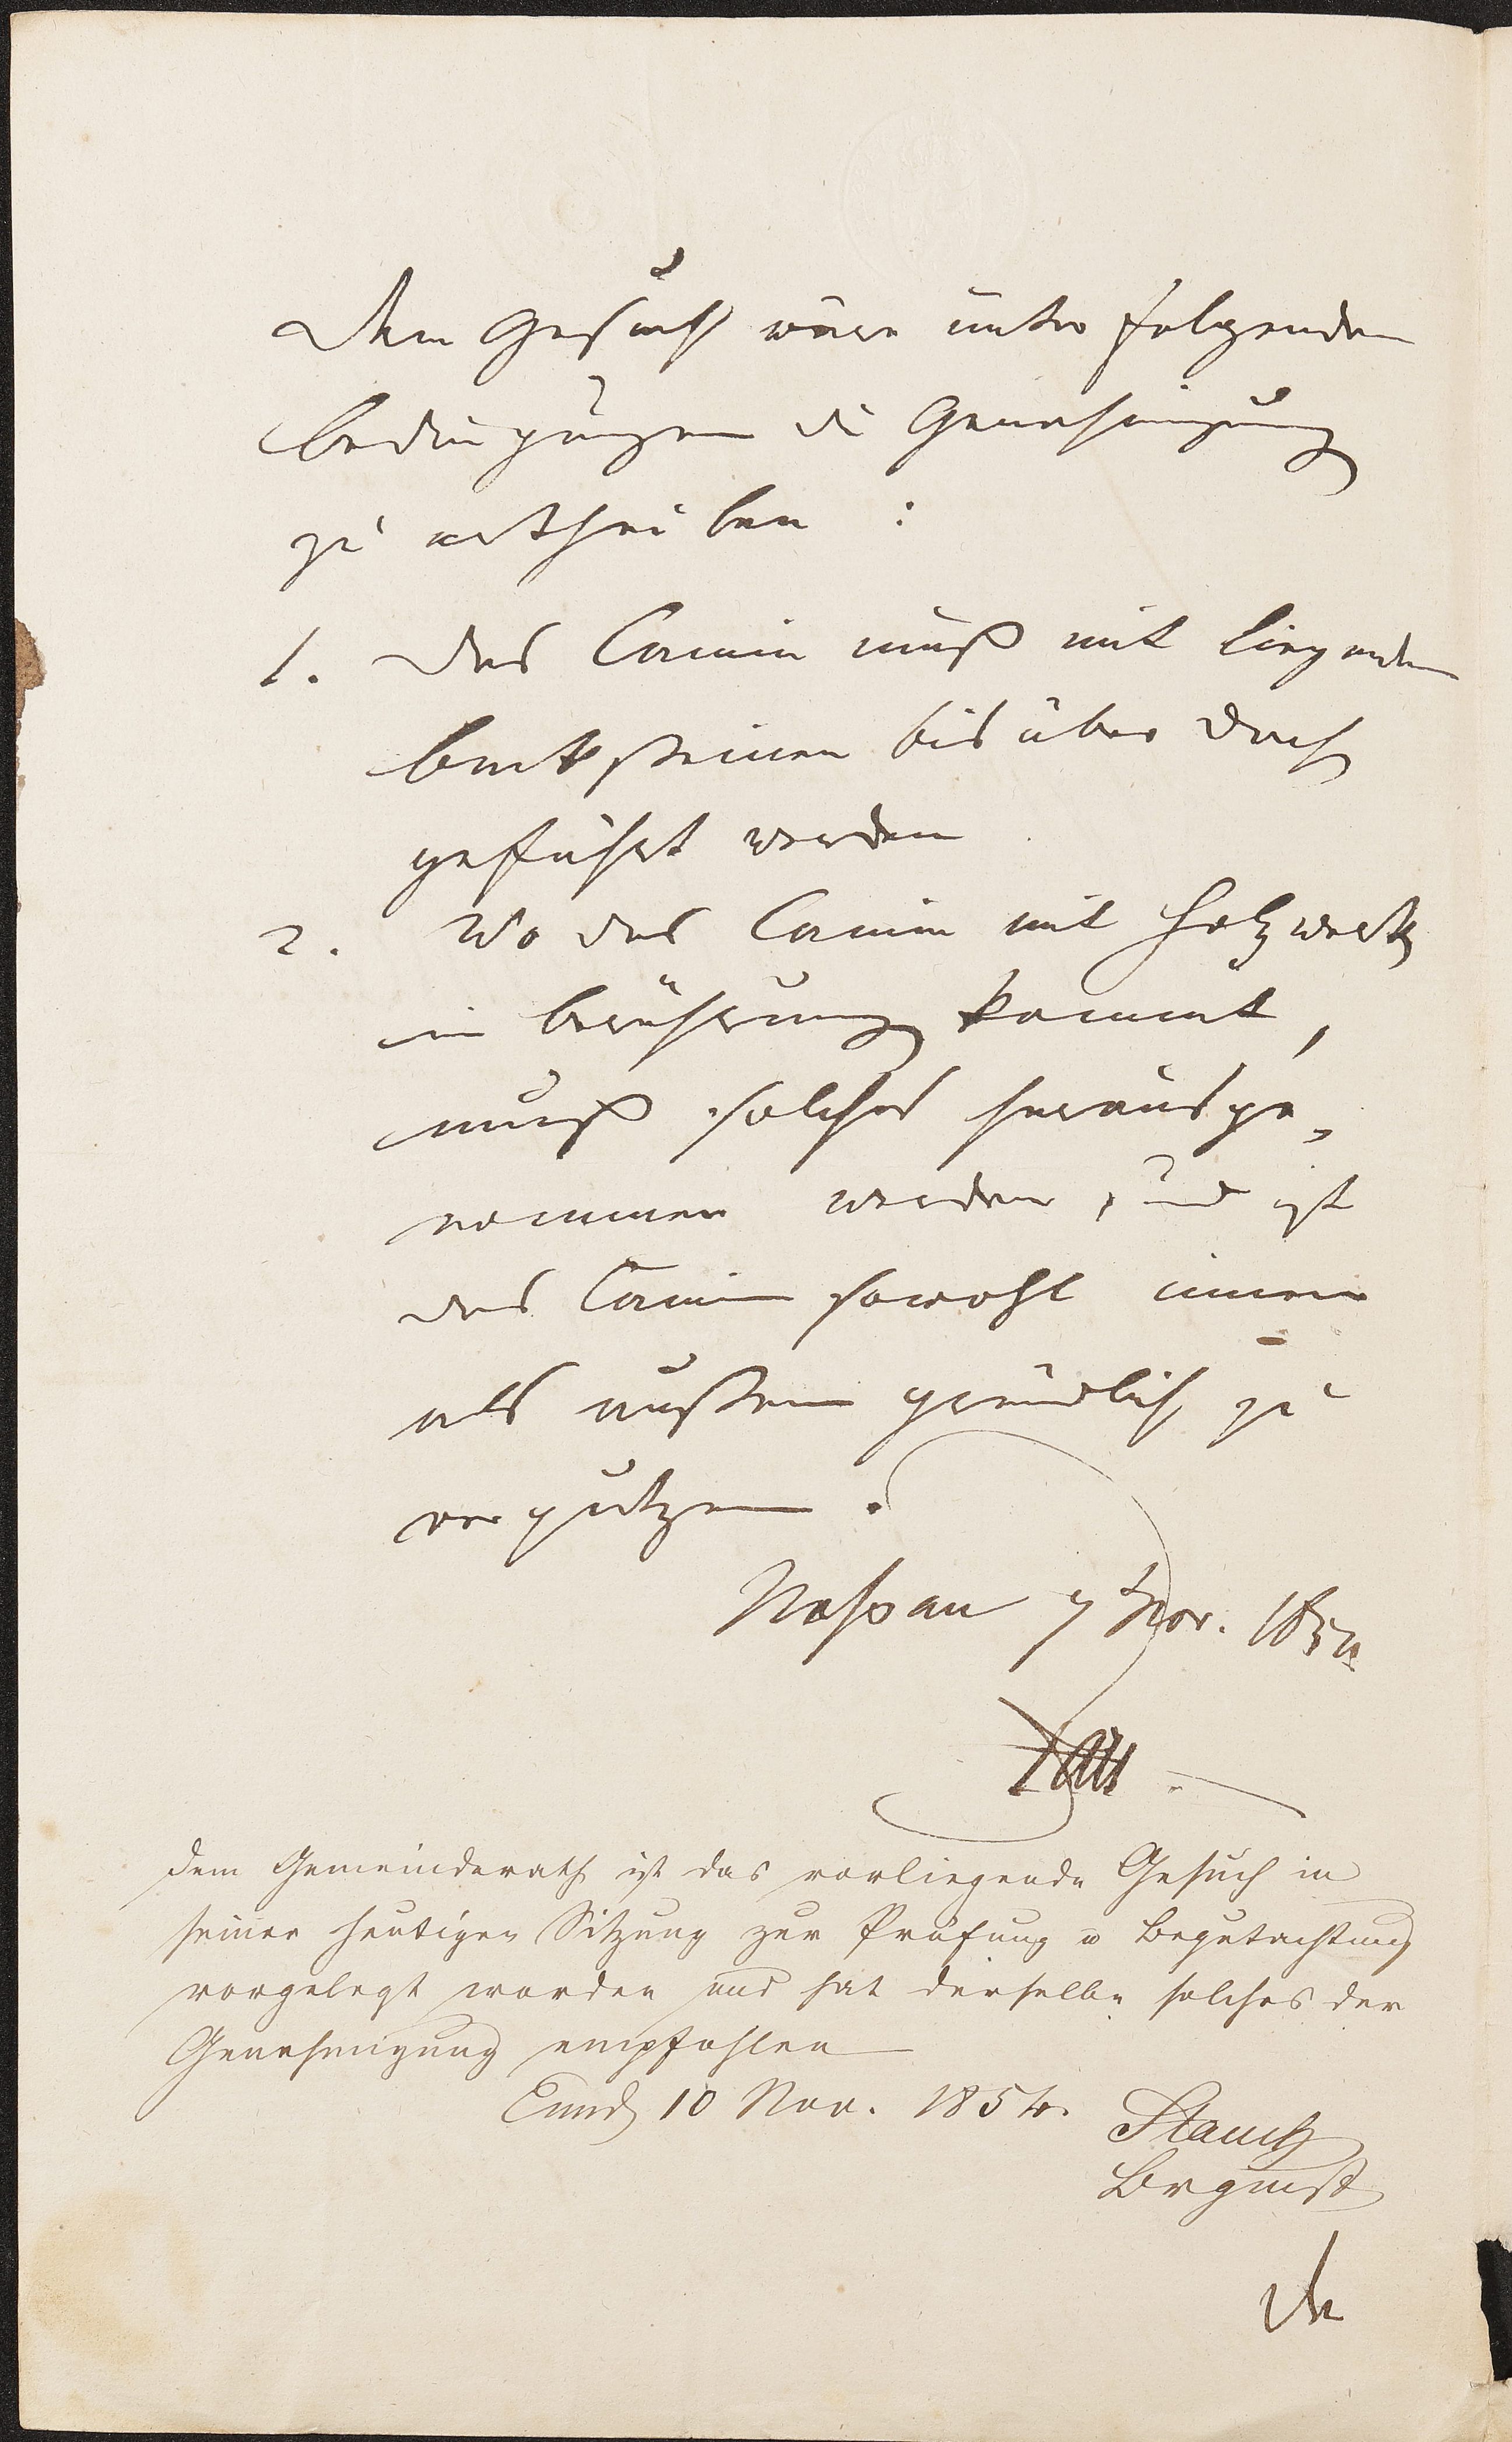 Dem Gesuch wäre unter folgenden
bedingungen die Genehmigung
zu ertheilen :
1. Das Camin muß mit liegenden
backsteinen bis über Dach
geführt werden
2. Wo das Camin mit Holzwerk
in berührung kommt,
muß solches herausge„
nommen werden, und ist
das Camin sowohl innen
als außen gründlich zu
verputzen.
Nassau 7 Nov. 1854
Dem Gemeinderath ist das vorliegende Gesuch in
seiner heutigen Sitzung zur Prüfung u Begutachtung
vorgelegt worden und hat derselbe solches der
Genehmigung empfohlen
Emd, 10 Nov. 1854.
Stauch
Brgmst